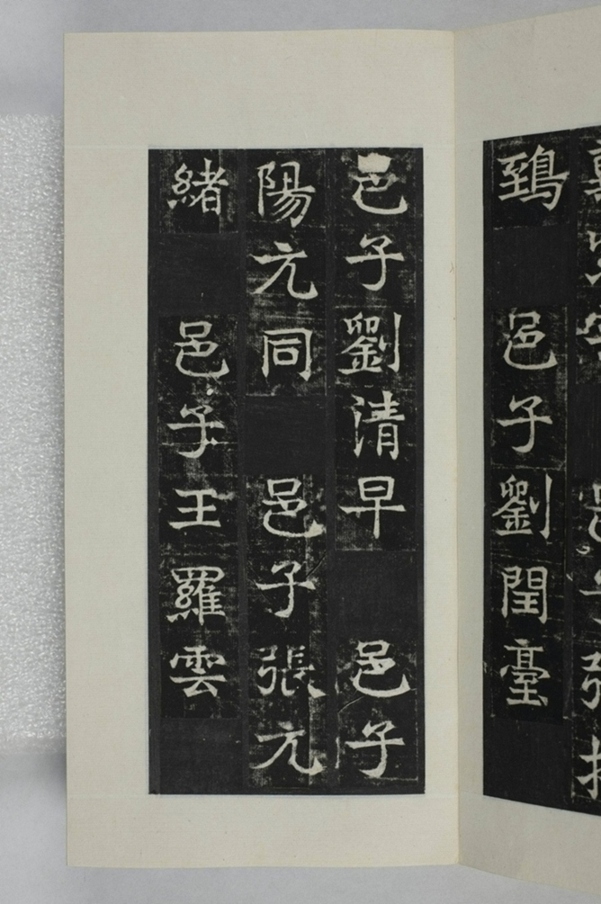 鵄 邑子劉閏臺
邑子劉清早 邑子
陽元同 邑子張元
緒 邑子王羅雲